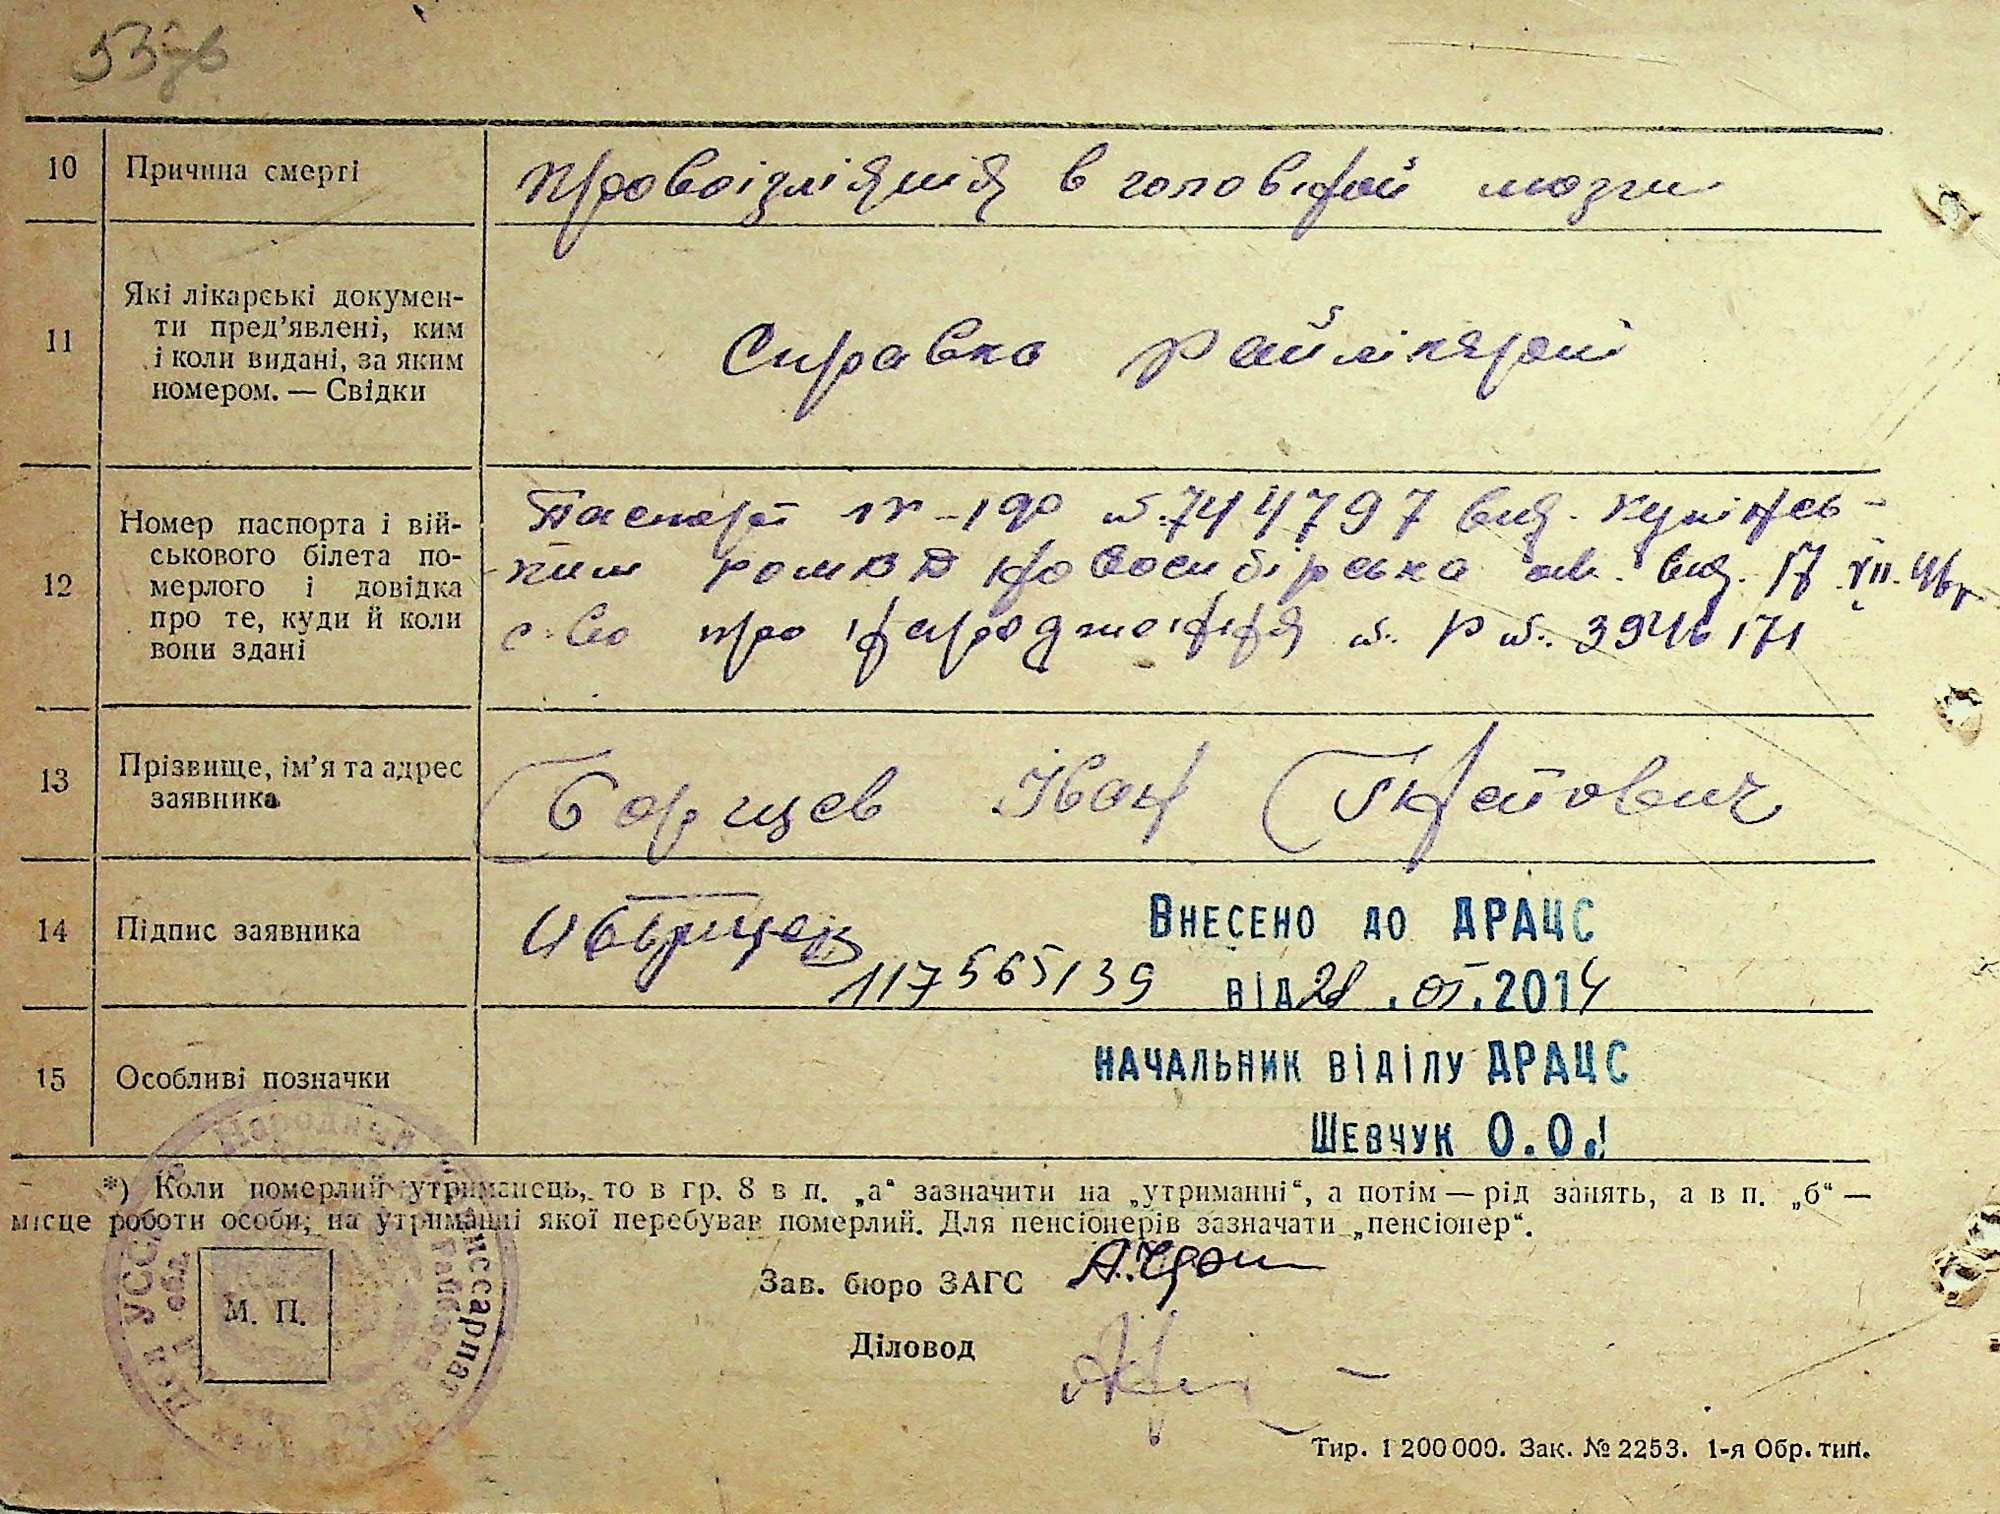 53
10 Причина смерті
Кровоізліянія в головной мозги
11 Які лікарські докумен-
ти пред’явлені, ким
і коли видані, за яким
номером. — Свідки
Справка райлікарні
12 Номер паспорта і вій-
ськового білета по-
мерлого і довідка
про те, куди й коли
вони здані
Паспорт № 744797 вид.
ким РОМВД Новосибірська вид. 17 VII.
с-во про народження 3946171
13 Прізвище, ім’я та адрес
заявника
Борщев Іван Ігнатович
14 Підпис заявника
Внесено до ДРАЦС
117565139 від 28.05.2014
15 Особливі позначки
начальник віділу ДРАЦС
Шевчук О.О.
*) Коли померлий утриманець, то в гр. 8 в п. „а“ зазначити на „утриманні“, а потім — рід занять, а в п. „б“ —
місце роботи особи, на утриманні якої перебував померлий. Для пенсіонерів зазначати „пенсіонер“.
М. П.
Зав. бюро ЗАГС
Діловод
Тир. 1 200 000. Зак. № 2253. 1-я Обр. тип.